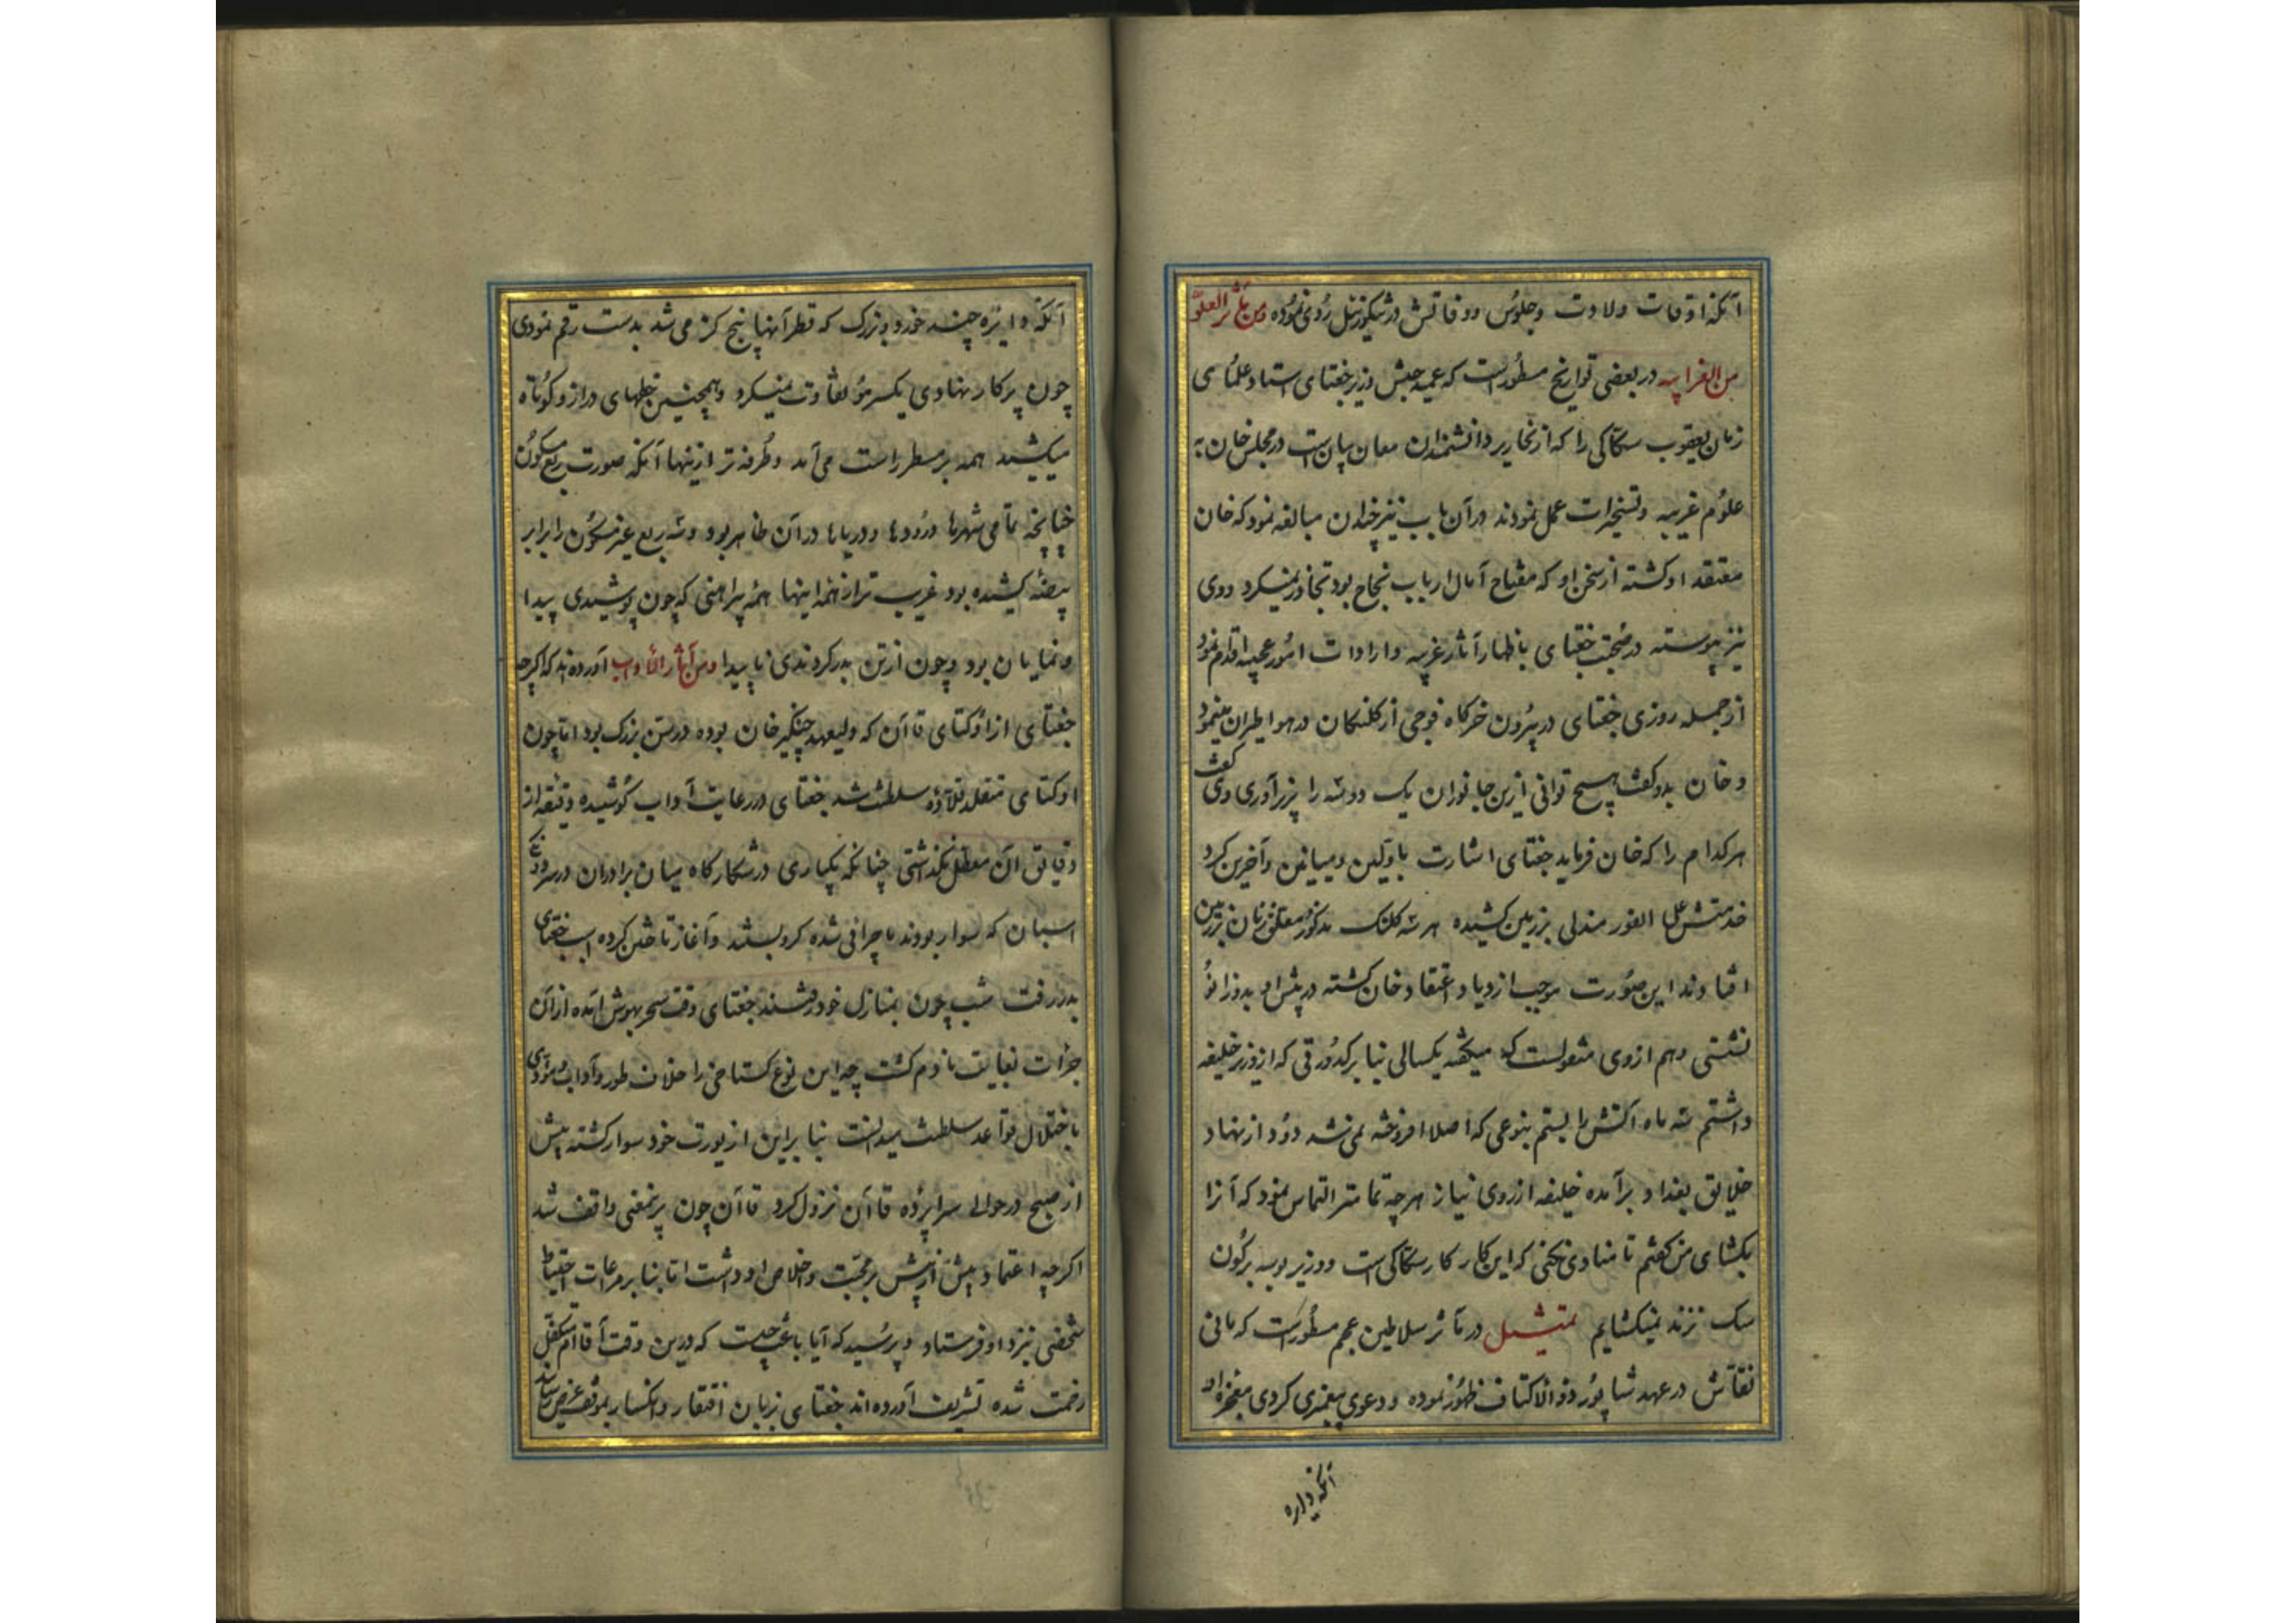 آنکه اوقات ولادت وجلوس ووفاتش در سیکوزئیل روی نموده ومن مآثر العلو
من الغرایبه در بعضی تواریخ مسطورست که عمید حبش وزیر جغتای استاد علمای
زمان یعقوب سکاکی را که از نحاریر دانشمندان معان بیان است در مجلس خان به
علوم غریبه وتسخیرات عمل نمودند درآن باب نیز چندان مبالغه نمود که خان
معتقد او کشته از سخن او که مفتاح آمال ارباب نجاح بود تجاوز نمیکرد ووی
نیز پیوسته در صحبت جغتای باظهار آثار غریبه وارادات امور عجیبه اقدام نمود
از جمله روزی جغتای در بیرون خرکاه فوجی از کلنکان در هوا طیران مینمود
وخان بدو کفت هیچ توانی ازین جانوران یک دو سه را بزیر آوری وی کفت
هر کدام را که خان فرماید جغتای اشارت باولین ومیانین وآخرین کرد
خدمتش علی الفور مندلی بر زمین کشیده هر سه کلنک مذکور معلق زنان بر زمین
افتادند این صورت موجب ازدیاد اعتقاد خان کشته در پیش او بدو زانو
نشستی وهم از وی منقولست که میکفته یکسالی بنابر کدورتی که از وزیر خلیفه
داشتم سه ماه آتش را بستم بنوعی که اصلا افروخته نمی شد دود از نهاد
خلایق بغداد برآمده خلیفه از روی نیاز هرچه تمامتر التماس نمود که آنرا
بکشای من کفتم تا منادی نکنی که این کار کار سکاکی است ووزیر بوسه بر کون
سک نزند نمیکشایم تمثیل در مآثر سلاطین عجم مسطورست که مانی
نقاش در عهد شاپور ذو الاکتاف ظهور نموده ودعوی پیغمبری کردی معجزه او
آنکه دایره
آنکه دایره چند خورد وبزرک که قطر آنها پنج کز می شد بدست رقم نمودی
چون پرکار نهادی یکسر مو تفاوت نمیکرد وهمچنین خطهای دراز وکوتاه
میکشید همه بر مسطر راست می آمد وطرفه تر از ینها آنکه صورت ربع مسکون
چنانچه تمامی شهرها ورودها ودریاها در آن ظاهر بود وسه ربع غیر مسکون را برابر
بیضه کشیده بود غریب تر از همه اینها همه پیراهنی که چون پوشیدی پیدا
ونمایان بود وچون از تن بدر کردندی ناپیدا ومن آثار الآداب آورده اند که اکرچه
جغتای از اوکتای قاآن که ولیعهد چنکیز خان بوده در سن بزرک بود اما چون
اوکتای متقلد قلاده سلطنت شد جغتای در رعایت آداب کوشیده دقیقه از
دقایق آن معطل نکذاشتی چنانکه یکباری در شکارکاه میان برادران در سر دو
اسپان که سوار بودند ماجرائی شده کرو بستند وآغاز تاختن کرده اسب جغتای
بدر رفت شب چون بمنازل خود رفتند جغتای وقت سحر بهوش آمده از آن
جرأت بغایت نادم کشت چه این نوع کستاخی را خلاف طور وآداب ومؤدی
باختلال قواعد سلطنت میدانست بنا براین از یورت خود سوار کشته پیش
از صبح در حوالی سراپرده قاآن نزول کرد قاآن چون برینمعنی واقف شد
اکرچه اعتماد بیش از پیش بر محبت واخلاص او داشت اما بنابر مراعات احتیاط
شخصی نزد او فرستاد وپرسید که آیا باعث چیست که درین وقت آقاام متکفل
زحمت شده تشریف آورده اند جغتای بزبان افتقار وانکسار بموقف عرض رساند